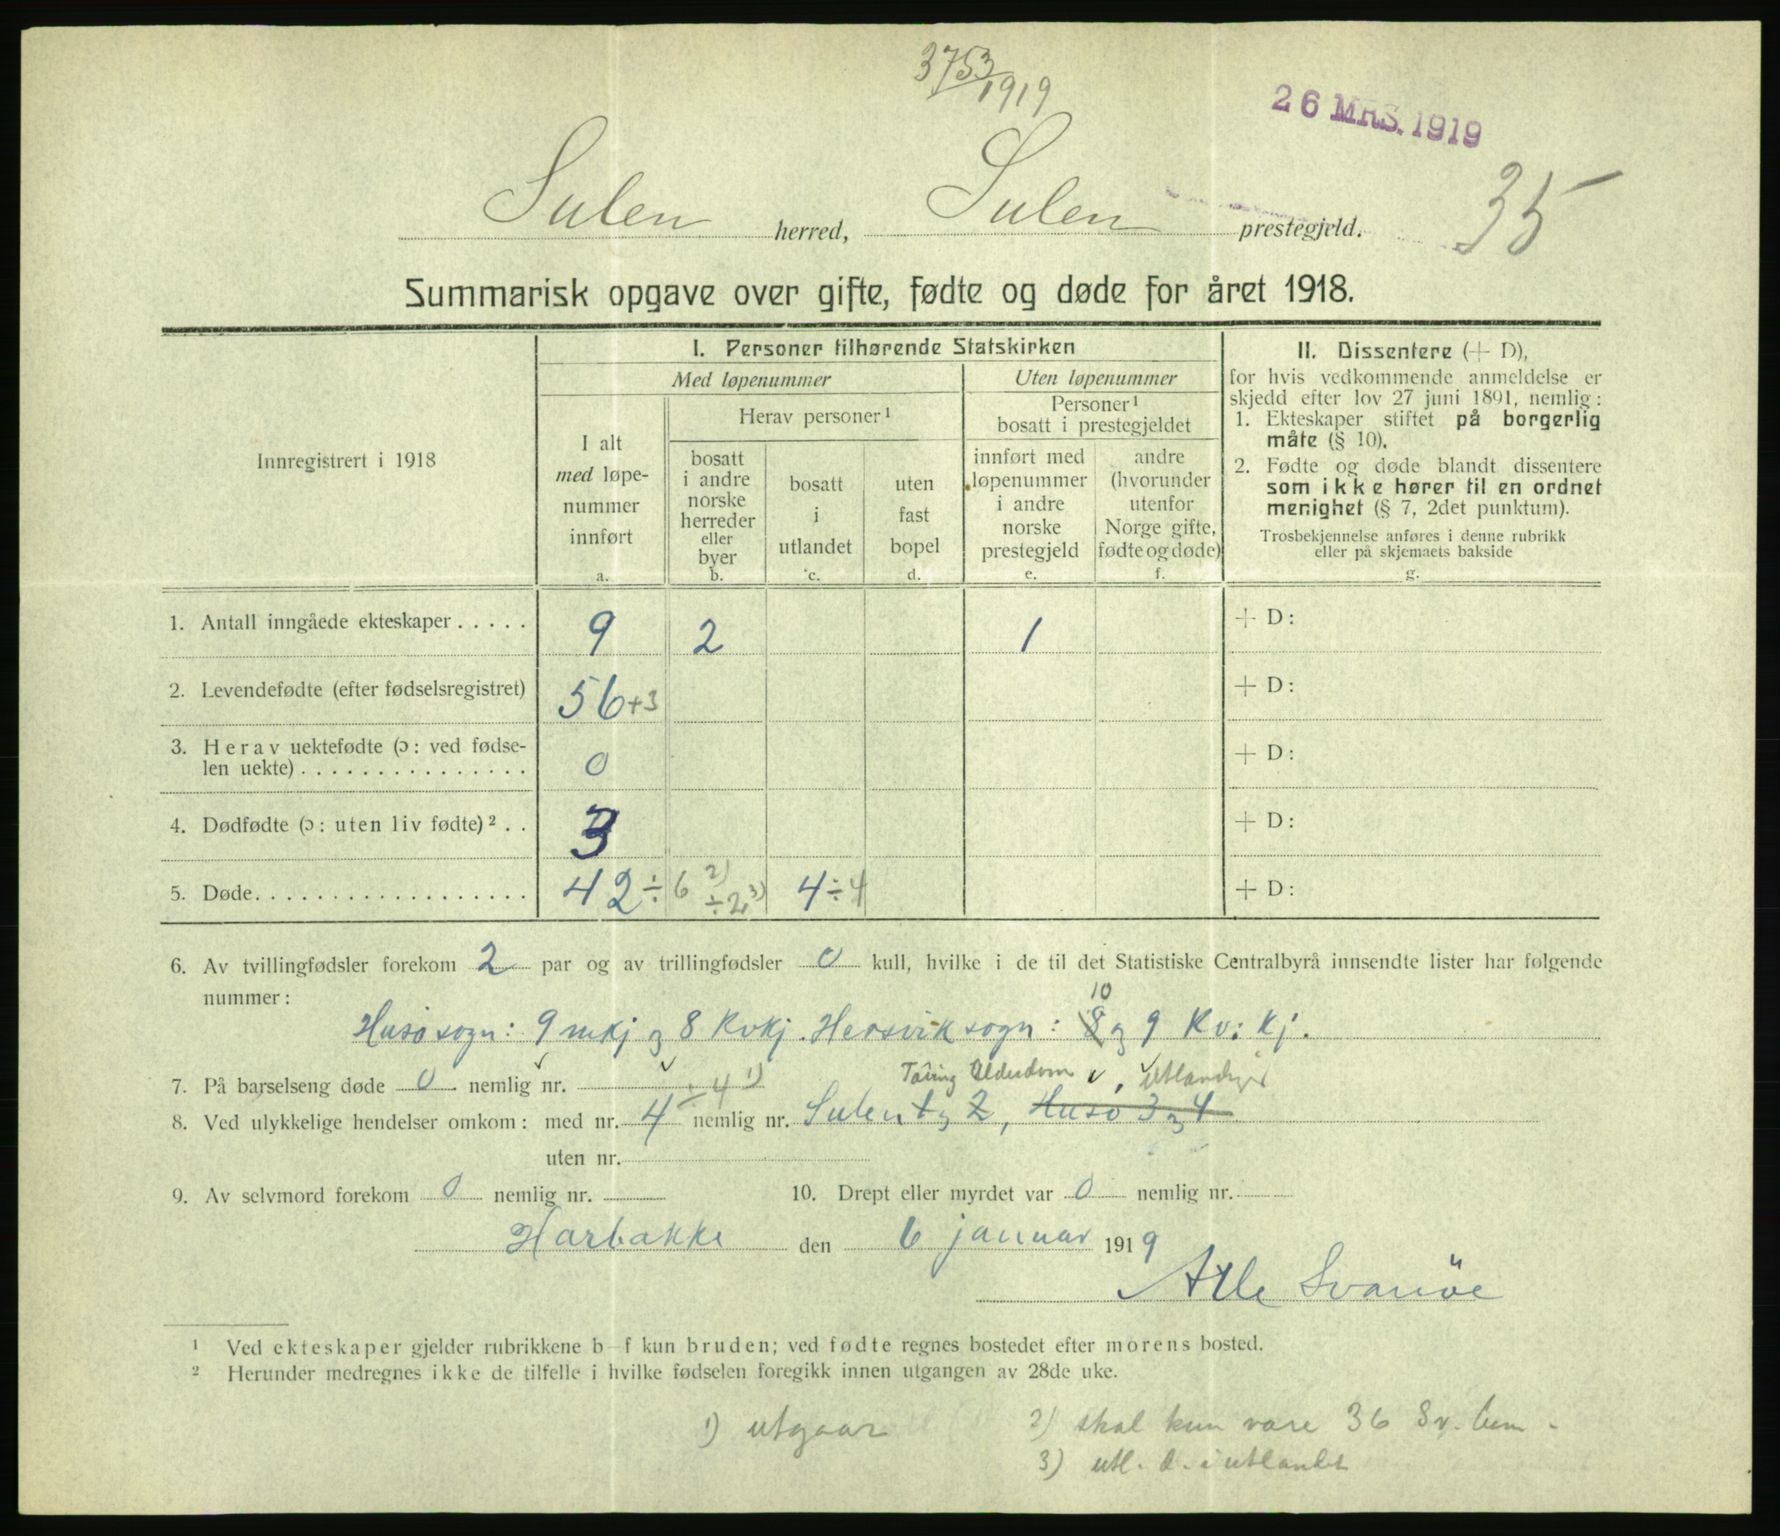 3753/1919
26 MRS. 1919
35
Sulen herred, Sulen prestegjeld.
Summarisk opgave over gifte, fødte og døde for året 1918.
Innregistrert i 1918
I. Personer tilhørende Statskirken
Med løpenummer
Uten løpenummer
I alt
med løpe-
nummer
innført
a.
Herav personer ¹
bosatt
i andre
norske
herreder
eller
byer
b.
bosatt
i
utlandet
c.
uten
fast
bopel
d.
Personer ¹
bosatt i prestegjeldet
innført med
løpenummer
i andre
norske
prestegjeld
e.
andre
(hvorunder
utenfor
Norge gifte,
fødte og døde)
f.
II. Dissentere (+ D),
for hvis vedkommende anmeldelse er
skjedd efter lov 27 juni 1891, nemlig:
1. Ekteskaper stiftet på borgerlig
måte (§ 10).
2. Fødte og døde blandt dissentere
som ikke hører til en ordnet
menighet (§ 7, 2det punktum).
Trosbekjennelse anføres i denne rubrikk
eller på skjemaets bakside
g.
1. Antall inngåede ekteskaper . . . . . 9 2 1 + D:
2. Levendefødte (efter fødselsregistret) 56 +3 + D:
3. Herav uektefødte (ɔ: ved fødse-
len uekte) . . . . . . . . . . . . . . . 0 + D:
4. Dødfødte (ɔ: uten liv fødte) ² . . 3 + D:
5. Døde. . . . . . . . . . . . . . . . . . 42 ÷ 6 2) ÷ 2 3) 4 ÷ 4 + D:
6. Av tvillingfødsler forekom 2 par og av trillingfødsler 0 kull, hvilke i de til det Statistiske Centralbyrå innsendte lister har følgende
nummer:
10
Husø sogn: 9 mkj og 8 Kvkj. Hersvik sogn: 8 og 9 Kv: kj.
7. På barselseng døde 0 nemlig nr.
÷ 4 1) Tæring Alderdom , Utlandiget
8. Ved ulykkelige hendelser omkom: med nr. 4 nemlig nr. Sulen 1 og 2, Husø 3 og 4
uten nr.
9. Av selvmord forekom 0 nemlig nr. 10. Drept eller myrdet var 0 nemlig nr.
Harbakke den 6 januar 1919
Atle Svanöe
¹ Ved ekteskaper gjelder rubrikkene b–f kun bruden; ved fødte regnes bostedet efter morens bosted.
² Herunder medregnes ikke de tilfelle i hvilke fødselen foregikk innen utgangen av 28de uke.
1) utgaar
2) skal kun være 36 Sv.
3) utl. d. i utlandet